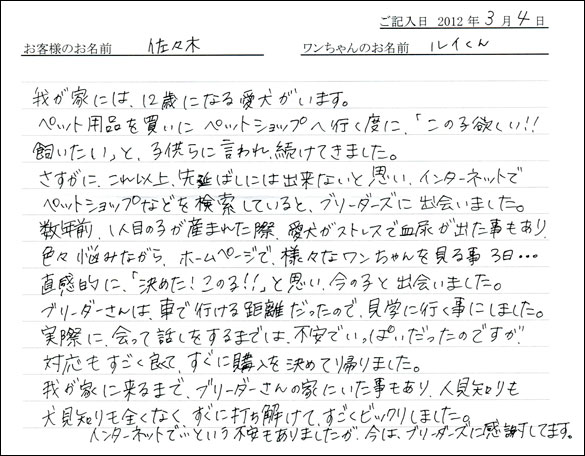 ご記入日 2012年 3月 4日
お客様のお名前 佐々木 ワンちゃんのお名前 ルイくん
我が家には、12歳になる愛犬がいます。
ペット用品を買いに ペットショップへ行く度に、「この子欲しい!!
飼いたい」と、子供らに言われ、続けてきました。
さすがに、これ以上、先延ばしには出来ないと思い、インターネットで
ペットショップなどを検索していると、ブリーダーズに出会いました。
数年前、1人目の子が産まれた際、愛犬がストレスで血尿が出た事もあり、
色々悩みながら、ホームページで、様々なワンちゃんを見る事3日…
直感的に、「決めた!この子!!」と思い、今の子と出会いました。
ブリーダーさんは、車で行ける距離だったので、見学に行く事にしました。
実際に、会って話しをするまでは、不安でいっぱいだったのですが、
対応もすごく良くて、すぐに購入を決めて帰りました。
我が家に来るまで、ブリーダーさんの家にいた事もあり、人見知りも
犬見知りも全くなく、すぐに打ち解けて、すごくビックリしました。
インターネットで…という不安もありましたが、今は、ブリーダーズに感謝してます。